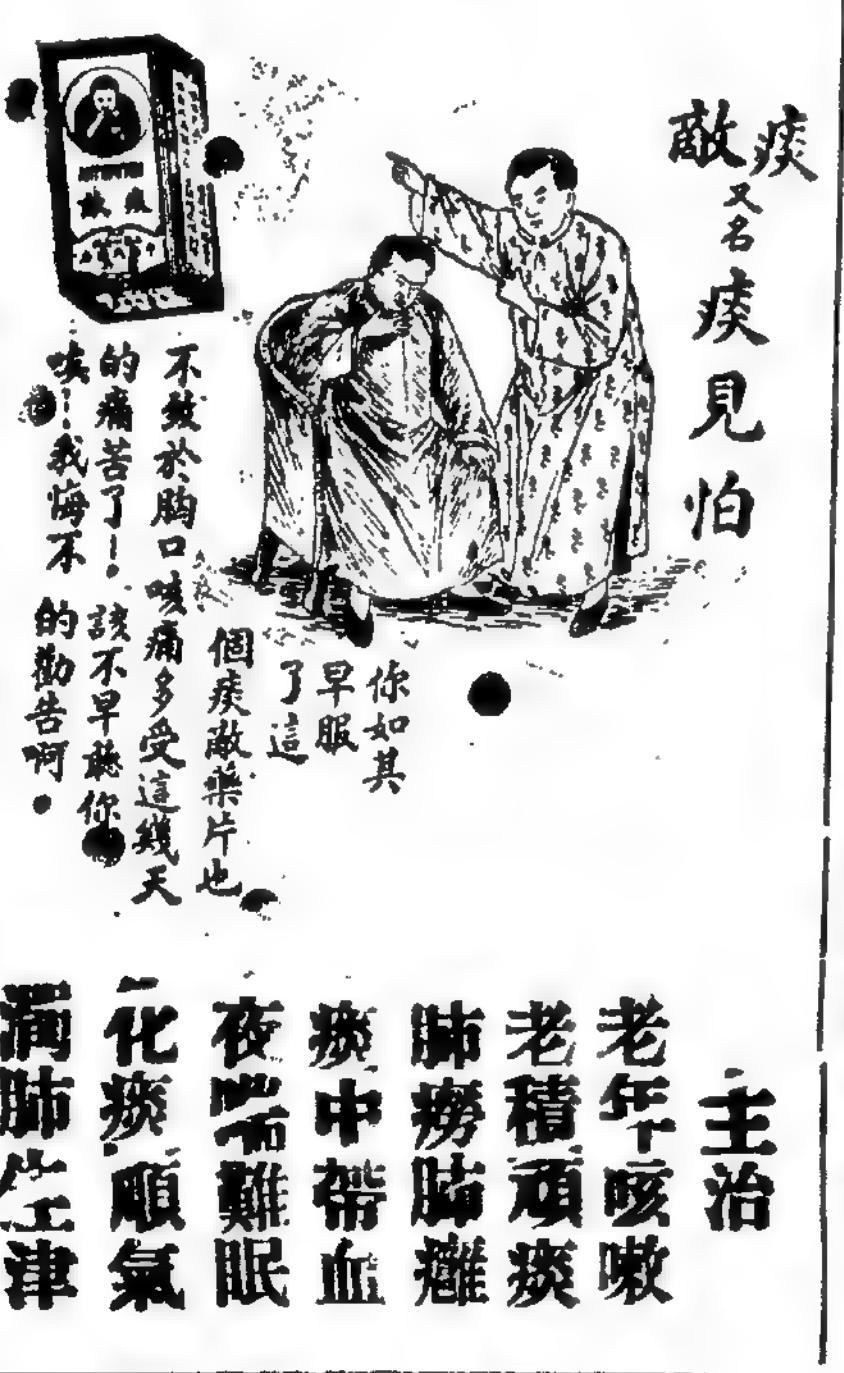 痰敵
又名
痰見怕
你如其
早服
了這
個痰敵藥片也
不致於胸口咳痛多受這幾天
的痛苦了！
唉！！我悔不
該不早聽你
的勸告啊。
主治
老年咳嗽
老積頑痰
肺癆肺癰
痰中帶血
夜喘難眠
化痰順氣
潤肺生津